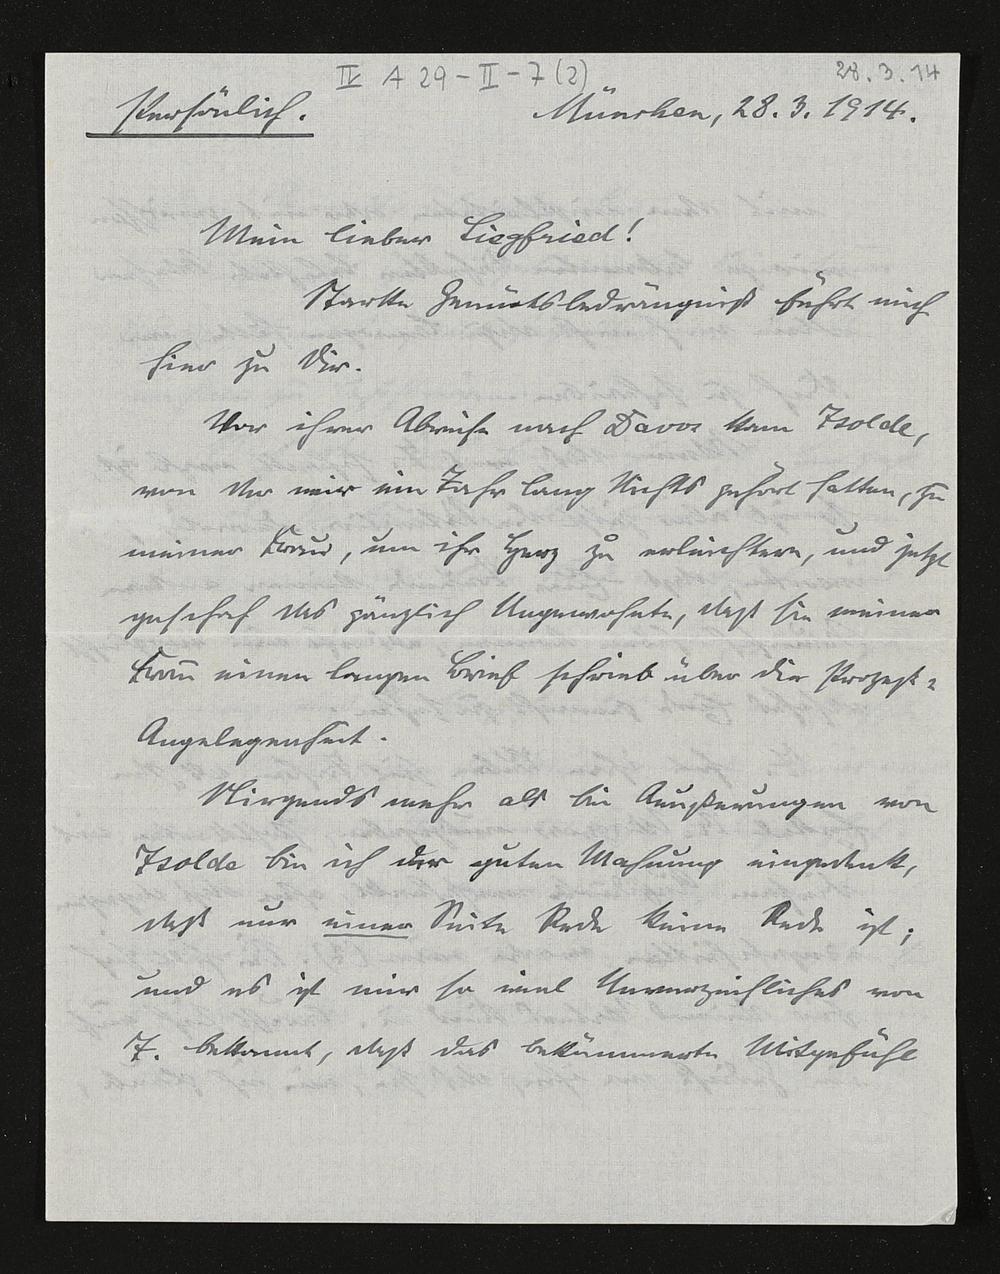 IV A 29-II-7(2)
28.3.14
Persönlich.
München, 28.3.1914.
Mein lieber Siegfried!
Starke Gemütsbedrängniß führt mich
hier zu Dir.
Vor ihrer Abreise nach Davos kam Isolde,
von der wir ein Jahr lang Nichts gehört hatten, zu
meiner Frau, um ihr Herz zu erleichtern, und jetzt
geschah das gänzlich Ungewohnte, daß sie meiner
Frau einen langen Brief schrieb über die Prozeß-
Angelegenheit.
Nirgends mehr als bei Äußerungen von
Isolde bin ich der guten Mahnung eingedenk,
daß nur einer Seite Rede keine Rede ist;
und es ist mir so viel Unverzeihliches von
I. bekannt, daß das bekümmerte Mitgefühl